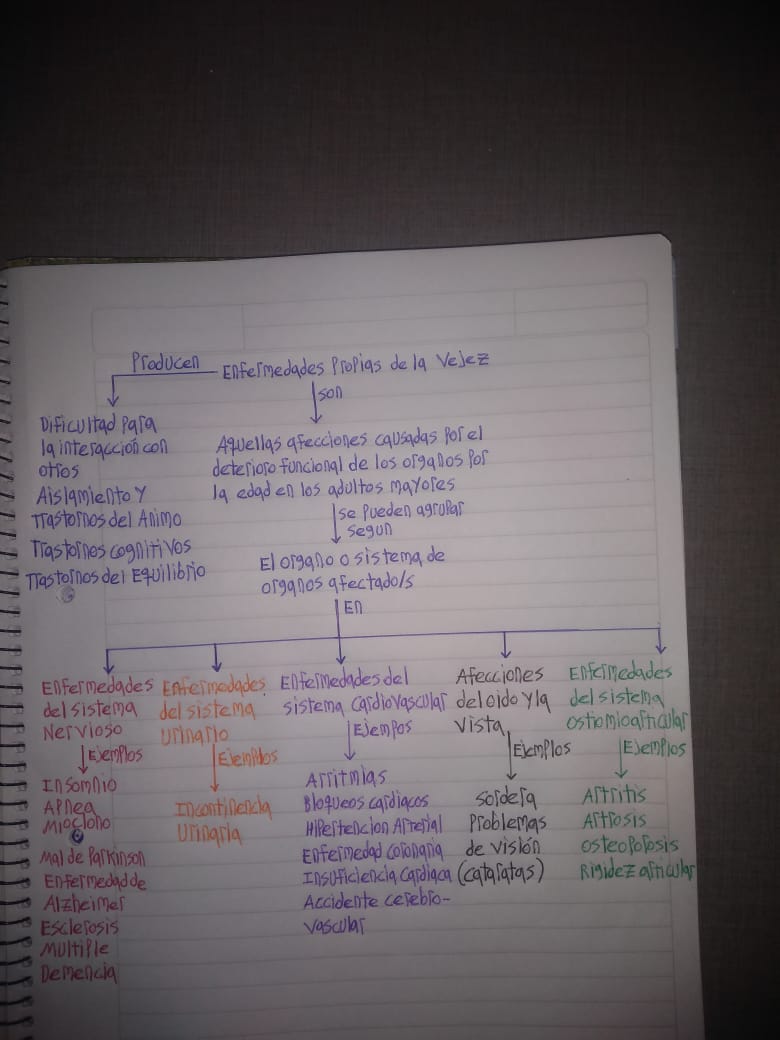 Producen
Enfermedades Propias de la Vejez
son
Dificultad Para
la interacción con
otros
Aislamiento y
Trastornos del Animo
Trastornos cognitivos
Trastornos del Equilibrio
Aquellas afecciones causadas por el
deterioro funcional de los organos por
la edad en los adultos mayores
se pueden agrupar
segun
El organo o sistema de
organos afectado/s
En
Enfermedades
del sistema
Nervioso
Ejemplos
Insomnio
Apnea
Mioclono
Mal de Parkinson
Enfermedad de
Alzheimer
Esclerosis
Multiple
Demencia
Enfermedades
del sistema
Urinario
Ejemplos
Incontinencia
Urinaria
Enfermedades del
sistema cardiovascular
Ejempos
Arritmias
Bloqueos cardiacos
Hipertencion Arterial
Enfermedad coronaria
Insuficiencia cardiaca
Accidente cerebro-
vascular
Afecciones
del oido y la
vista
Ejemplos
sordera
Problemas
de visión
(cataratas)
Enfermedades
del sistema
ostiomioarticular
Ejemplos
Artritis
Artrosis
osteoporosis
Rigidez articular